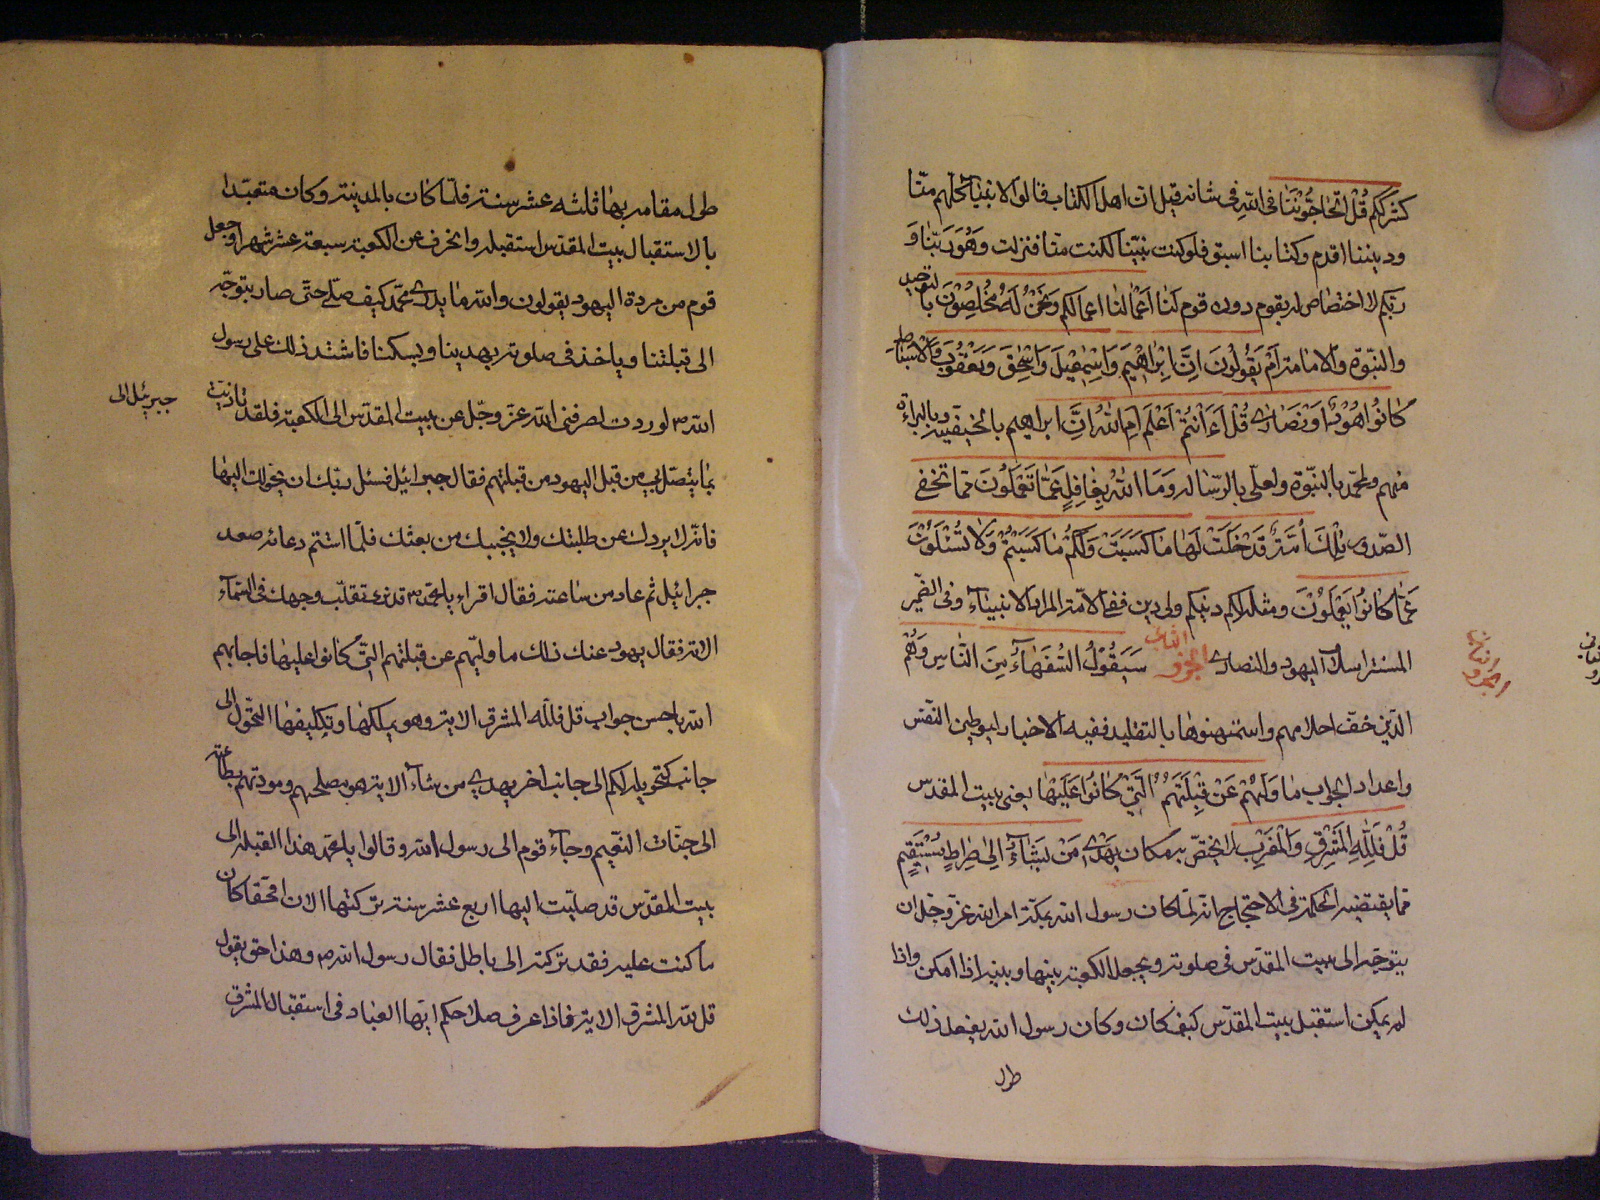 كشرككم قُلْ اَتُحَاجُّونَنَا فى اللّهِ فى شانه قيل ان اهل الكتاب قالوا الانبياء كلهم منّا
و ديننا اقدم وكتابنا اسبق فلو كنت نبيّنا لكنت منّا فنزلت وَهُوَ رَبُّنَا وَ
رَبُّكم لا اختصاص له بقوم دون قوم لَنَا اَعْمَالنا و اعمالكم وَنَحْنُ لَهُ مُخْلِصُونَ بالتوحيد
والنبوّة والامامة اَمْ يَقُولُونَ اِنَّ اِبْرَاهِيمَ وَاِسْمٰعِيلَ وَاِسْحٰقَ وَيَعْقُوبَ وَالْاَسْبَاطَ
كَانُوا هُودًا اَوْ نَصَارٰى قُلْ ءَاَنْتُمْ اَعْلَم اَمِ اللهُ اِنَّ ابراهيم بالحنيفية وبالبراءة
منهم ولمحمّد بالنبوّة ولعلّى بالرسالة وَمَا اللهُ بِغَافِلٍ عَمَّا تَعْمَلُونَ ممّا تخفى
الصّدور تِلْكَ اُمَّةٌ قَدْ خَلَتْ لَهَا مَا كَسَبَتْ وَلَكُمْ مَا كَسَبْتُمْ وَلَا تُسْئَلُونَ
عَمَّا كَانُوا يَعْمَلُونَ ومثله لكم دينكم ولى دين ففى الامّة المراد الانبياء وفى الضمير
المستتر اسلاف اليهود والنصارى الجزو الثانى سَيَقُولُ السُّفَهَاءُ مِنَ النَّاسِ وَهُمْ
الّذين خفّ احلامهم واستمهنوها بالتقليد ففيه الاخبار ليوطين النفس
واعداد الجواب مَا وَلّٰهُمْ عَنْ قِبْلَتِهِمُ الَّتِى كَانُوا عَلَيْهَا يعنى بيت المقدس
قُلْ فَلِلّٰهِ الْمَشْرِقِ وَالْمَغْرِبِ لا يختصّ به مكان يَهْدِى مَنْ يَشَاءُ اِلٰى صِرَاطٍ مُسْتَقِيمٍ
ممّا يقتضيه الحكمة فى الاحتجاج انه لمّا كان رسول الله بمكّة امر الله عزّ وجلّ ان
يتوجّه الى بيت المقدّس فى صلوته ويجعل الكعبة بينها وبينه اذا امكن واذا
لم يمكن استقبل بيت المقدّس كيف كان وكان رسول الله يفعل ذلك
طول
الجزو الثانى
طول مقامه بها ثلثه عشر سنة فلمّا كان بالمدينة وكان متعبّدا
بالاستقبال بيت المقدّس استقبله وانحرف عن الكعبة سبعة عشر شهرا وجعل
قوم من مردة اليهود يقولون والله ما يدرى محمّد كيف صلّى حتّى صار يتوجّه
الى قبلتنا و ياخذ فى صلوته بهدينا و بسكنا فاشتدّ ذلك على رسول
الله ص لوردت لصرفنى الله عزّ وجلّ عن بيت المقدّس الى الكعبة فلقد تاذيت
جبرئيل الى
بما يتّصل بى من قبل اليهود من قبلتهم فقال جبرائيل فسئل ربّك ان يحوّلك اليها
فانّه لا يردك عن طلبتك ولا يخيبك من بعثك فلمّا استتم دعائه صعد
جبرائيل ثم عاد من ساعته فقال اقراء يا محمّد ص قد نرى تقلّب وجهك فى السّماء
الاية فقال يهود عند ذلك ما وليهم عن قبلتهم الّتى كانوا عليها فاجابهم
الله باحسن جواب قل فلله المشرق الاية وهو يملكها وتكليفها التحوّل الى
جانب كتحويله لكم الى جانب اخر يهدى من شاء الاية هو مصلحهم ومودتهم بطاعته
الى جنّات النّعيم وجاء قوم الى رسول الله وقالوا يا محمّد هذا القبلة الى
بيت المقدّس قد صلّيت اليها اربع عشر سنة تركتها الان افحقّا كان
ما كنت عليه فقد تركته الى باطل فقال رسول الله ص وهذا حق يقول
قل لله المشرق الاية فاذا عرف صلاحكم ايّها العباد فى استقبال المشرق